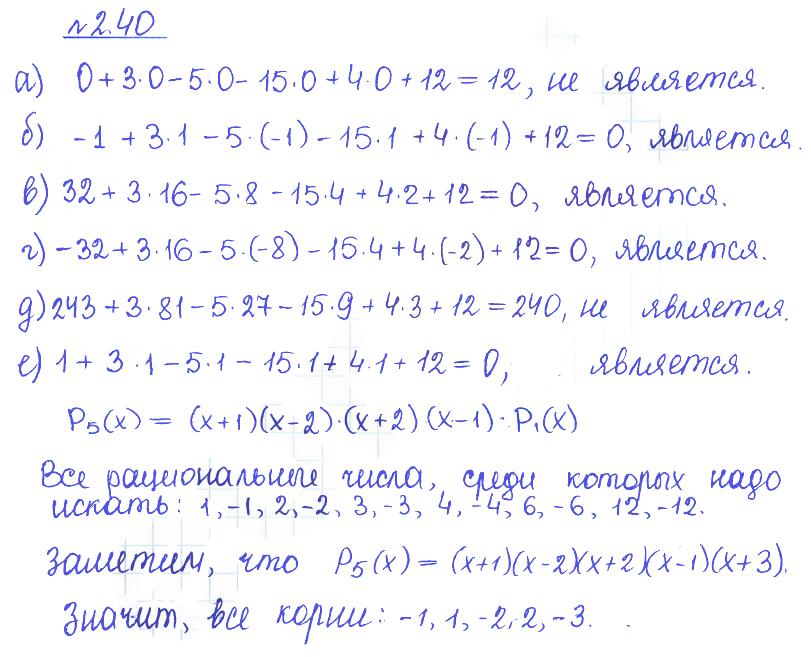 №2.40
а) 0+3·0-5·0-15·0+4·0+12=12, не является.
б) -1+3·1-5·(-1)-15·1+4·(-1)+12=0, является.
в) 32+3·16-5·8-15·4+4·2+12=0, является.
г) -32+3·16-5·(-8)-15·4+4·(-2)+12=0, является.
д) 243+3·81-5·27-15·9+4·3+12=240, не является.
е) 1+3·1-5·1-15·1+4·1+12=0, является.
P₅(x)=(x+1)(x-2)·(x+2)(x-1)·P₁(x)
Все рациональные числа, среди которых надо
искать: 1,-1, 2,-2, 3,-3, 4,-4, 6,-6, 12,-12.
Заметим, что P₅(x)=(x+1)(x-2)(x+2)(x-1)(x+3).
Значит, все корни: -1, 1, -2, 2, -3.